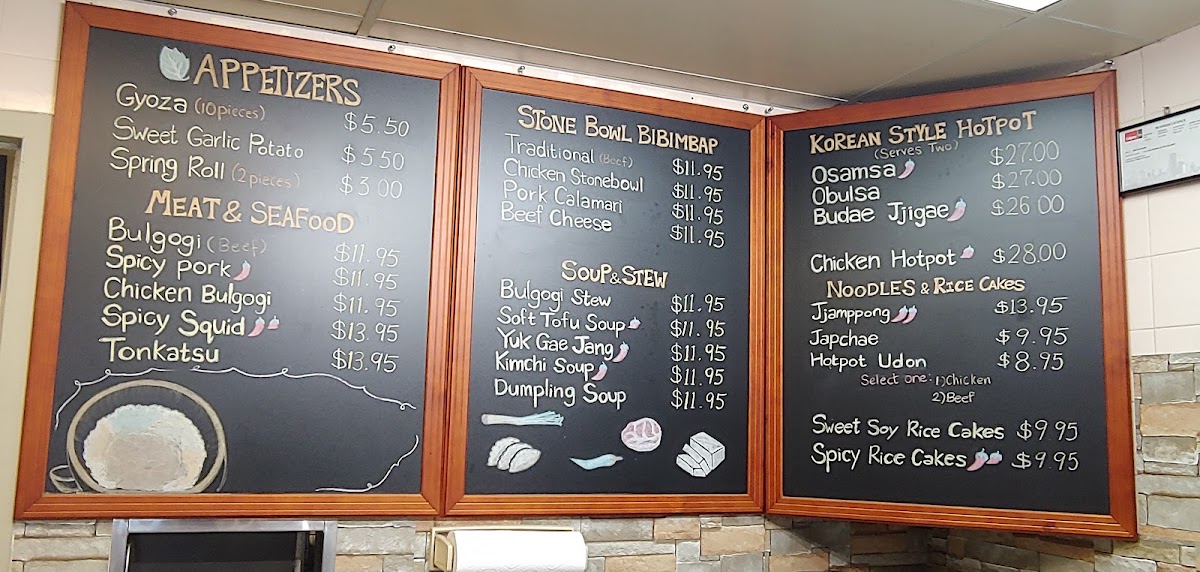 APPETIZERS
Gyoza (10 pieces) $5.50
Sweet Garlic Potato $5.50
Spring Roll (2 pieces) $3.00
MEAT & SEAFOOD
Bulgogi (Beef) $11.95
Spicy Pork $11.95
Chicken Bulgogi $11.95
Spicy Squid $13.95
Tonkatsu $13.95
STONE BOWL BIBIMBAP
Traditional (Beef) $11.95
Chicken Stonebowl $11.95
Pork Calamari $11.95
Beef Cheese $11.95
SOUP & STEW
Bulgogi Stew $11.95
Soft Tofu Soup $11.95
Yuk Gae Jang $11.95
Kimchi Soup $11.95
Dumpling Soup $11.95
KOREAN STYLE HOTPOT
(Serves Two)
Osamsa $27.00
Obulsa $27.00
Budae Jjigae $26.00
Chicken Hotpot $28.00
NOODLES & RICE CAKES
Jjamppong $13.95
Japchae $9.95
Hotpot Udon $8.95
Select one: 1) Chicken
2) Beef
Sweet Soy Rice Cakes $9.95
Spicy Rice Cakes $9.95